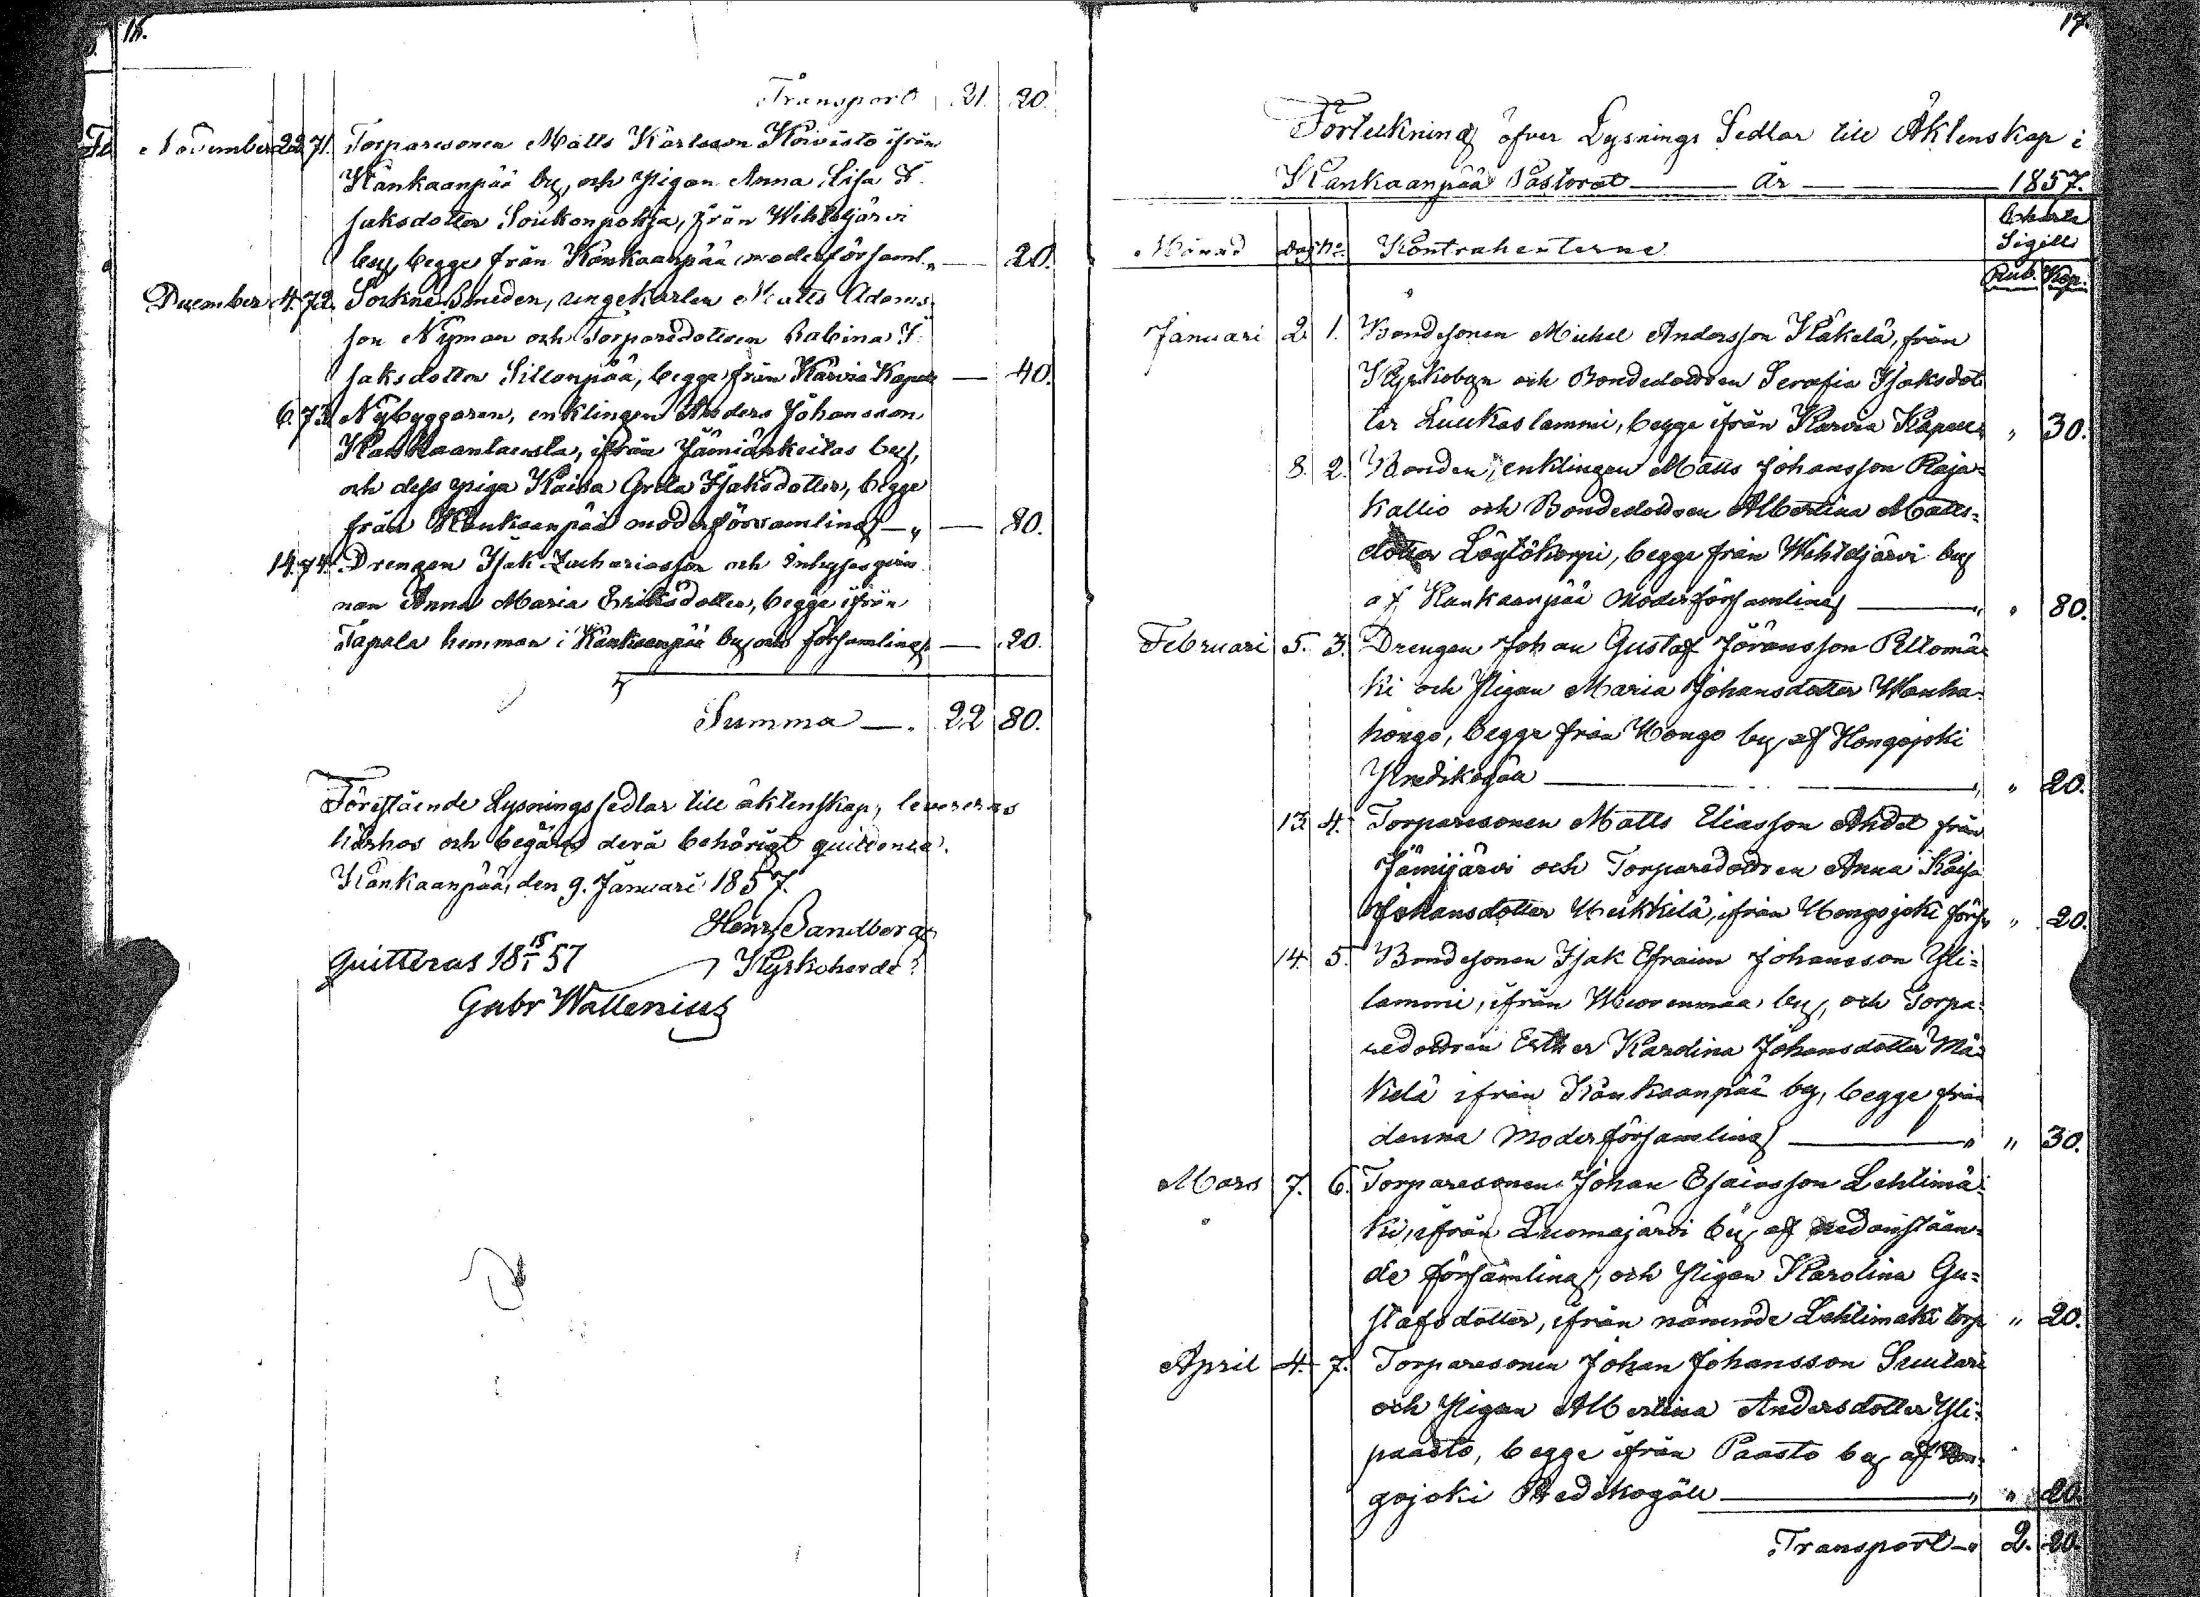 16.
Transport 21. 20.
November 22. 71. Torparesonen Matts Karlsson Koivisto ifrån
Kankaanpää by, och Pigan Anna Lisa I-
saksdotter Soukonpohja, från Wihteljärvi
by, begge från Kankaanpää moderförsaml. — 20.
December 4. 72. Sockne Smeden, ungekarlen Matts Adams-
son Nyman och Torparedottren Sabina I-
saksdotter Sillanpää, begge från Karvia Kapell — 40.
6. 73. Nybyggaren, enklingen Anders Johansson
Kankaantausta, ifrån Jämiänkeitas by,
och dess piga Kaisa Greta Isaksdotter, begge
från Kankaanpää moderförsamling — „ — 80.
14. 74. Drengen Isak Zachariasson och Inhyses qvin-
nan Anna Maria Eriksdotter, begge ifrån
Tapala hemman i Kankaanpää by och församling — 20.
Summa —„ 22 80.
Förestående Lysningssedlar till äktenskap, levereras
härhos och begäres derå behörigt quittence.
Kankaanpää, den 9. Januari 1857.
Henr Sandberg
Kyrkoherde
Quitteras 18 15/1 57
Gabr Wallenius
17.
Förteckning öfver Lysnings Sedlar till Äktenskap i
Kankaanpää Pastorat — År — 1857.
Charta
Sigill
Månad Dag No. Kontrahenterne
Rub. Kop.
Januari 2. 1. Bondesonen Michel Andersson Käkelä, från
Kyrkobyn och Bondedottren Serafia Isaksdot-
ter Luukaslammi, begge ifrån Karvia Kapell „ „ 30.
8. 2. Bonden, enklingen Matts Johansson Raja-
kallio och Bondedottren Albertina Matts-
dotter Löytökorpi, begge från Wihteljärvi by
af Kankaanpää Moderförsamling — „ „ 80.
Februari 5. 3. Drengen Johan Gustaf Göransson Peltomä-
ki och Pigan Maria Johansdotter Wanha-
hongo, begge från Hongo by af Hongojoki
Predikogäll — „ „ 20.
13. 4. Torparesonen Matts Eliasson Ahdet från
Jämijärvi och Torparedottren Anna Kaisa
Johansdotter Heikkilä, ifrån Hongojoki förs. „ 20.
14. 5. Bondesonen Isak Efraim Johansson Yli-
lammi, ifrån Wuorenmaa by, och Torpa-
redottren Esther Karolina Johansdotter Mä-
kelä ifrån Kankaanpää by, begge från
denna Moderförsamling — „ „ 30.
Mars 7. 6. Torparesonen Johan Esaiasson Lehtimä-
ki, ifrån Luomajärvi by af nedanstäen-
de församling, och Pigan Karolina Gu-
stafsdotter, ifrån nämnde Lehtimäki torp „ 20.
April 4. 7. Torparesonen Johan Johansson Suutari
och Pigan Albertina Andersdotter Yli-
paasto, begge ifrån Paasto by af Hon-
gojoki Predikogäll — „ „ 20.
Transport —„ 2. 20.